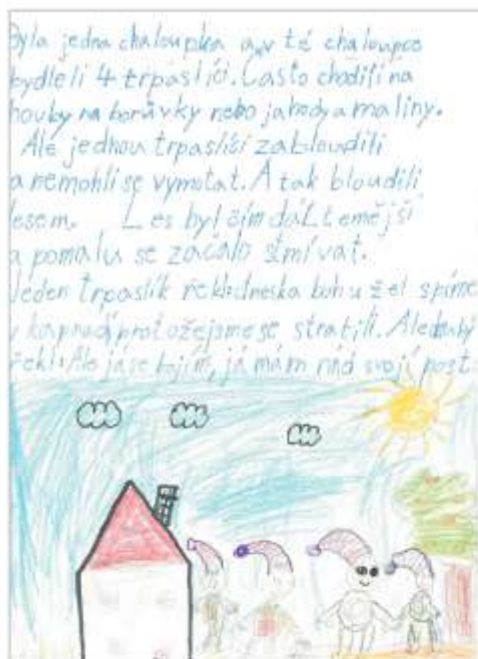 Byla jedna chaloupka a v té chaloupce
bydleli 4 trpaslíci. Často chodili na
houby na borůvky nebo jahody a maliny.
Ale jednou trpaslíci zabloudili
a nemohli se vymotat. A tak bloudili
lesem. Les byl čím dál temější
a pomalu se začalo stmívat.
Jeden trpaslík řekl: dneska bohu žel spíme
v kapradí protože jsme se stratili. Ale druhý
řekl: Ale já se bojím, já mám rád svojí post